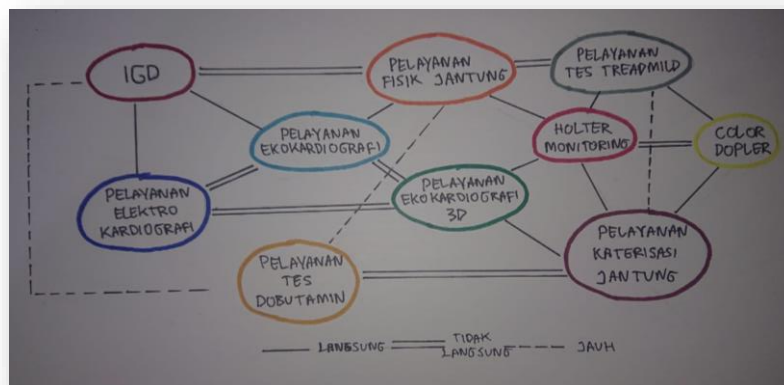 IGD
PELAYANAN
FISIK JANTUNG
PELAYANAN
TES TREADMILD
PELAYANAN
EKOKARDIOGRAFI
HOLTER
MONITORING
COLOR
DOPLER
PELAYANAN
ELEKTRO
KARDIOGRAFI
PELAYANAN
EKOKARDIOGRAFI
3D
PELAYANAN
KATERISASI
JANTUNG
PELAYANAN
TES
DOBUTAMIN
LANGSUNG
TIDAK
LANGSUNG
JAUH